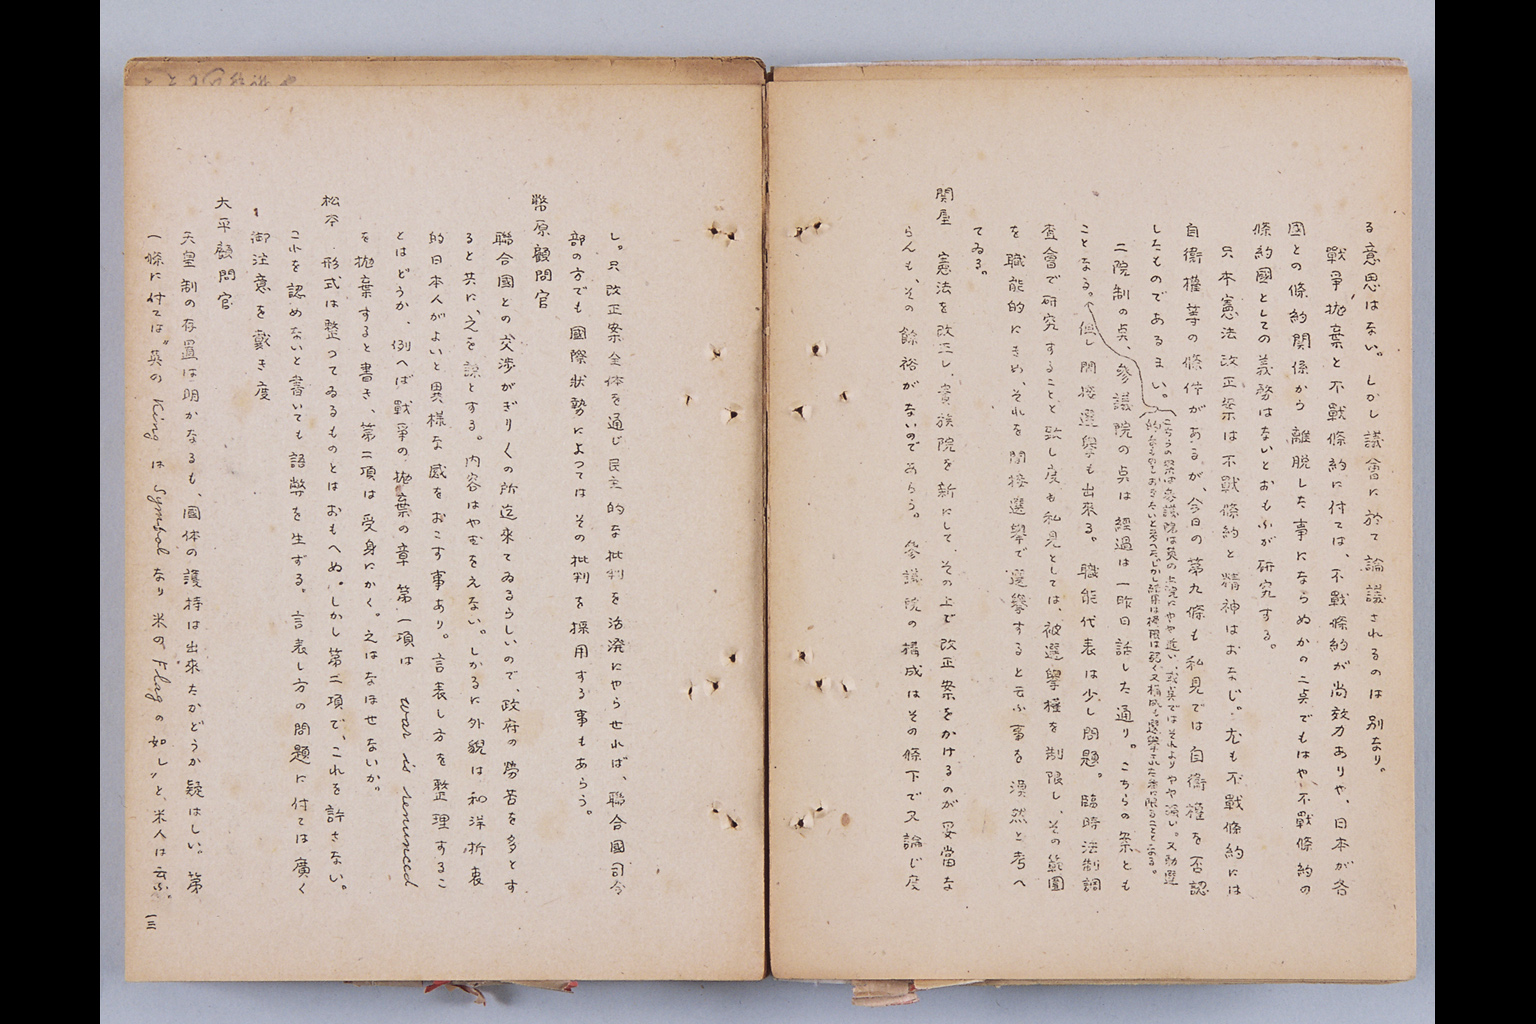 る意思はない。しかし議會に於て論議されるのは別なり。
戰爭抛棄と不戰條約に付ては、不戰條約が尚效力ありや、日本が各
國との條約関係から離脱した事にならぬかの二点でもはや不戰條約の
條約國としての義務はないとおもふが研究する。
只本憲法改正案は不戰條約と精神はおなじ。尤も不戰條約には
自衛權等の條件があるが、今日の第九條も私見では自衛權を否認
したものであるまい。
こちらの案は参議院は英の上院にやや近い、或点ではそれよりやや強い。又勅選
的なものをおきたいと考へた。しかし結果は権限は弱く又構成も選挙された者に限ることとなる。
二院制の点、参議院の点は経過は一昨日話した通り。こちらの案とも
ことなる。但し間接選擧も出來る。職能代表は少し問題。臨時法制調
査會で研究することと致し度も私見としては、被選擧權を制限し、その範囲
を職能的にきめ、それを間接選擧で選擧すると云ふ事を漠然と考へ
てゐる。
関屋 憲法を改正し、貴族院を新にして、その上で改正案をかけるのが妥當な
らんも、その餘裕がないのであらう。参議院の構成はその條下で又論じ度
し。只改正案全体を通じ民主的な批判を活溌にやらせれば、聯合國司令
部の方でも國際狀勢によつてはその批判を採用する事もあらう。
幣原顧問官
聯合國との交渉がぎりぐの所迄来てゐるらしいので、政府の勞苦を多とす
ると共に、之を諒とする。内容はやむをえない。しかるに外貌は和洋折衷
的日本人がよいと異様な感をおこす事あり。言表し方を整理するこ
とはどうか、例へば戰爭の抛棄の章 第一項は war is renounced
を抛棄すると書き、第二項は受身にかく。之はなほせないか。
松本 形式は整つてゐるものとはおもへぬ。しかし第二項で、これを許さない。
これを認めないと書いても語弊を生ずる。言表し方の問題に付ては廣く
御注意を戴き度
大平顧問官
天皇制の存置は明かなるも、國体の護持は出来たかどうか疑はしい。第
一條に付ては"英の King は Symbol なり 米の Flag の如し"と、米人は云ふ。
一三